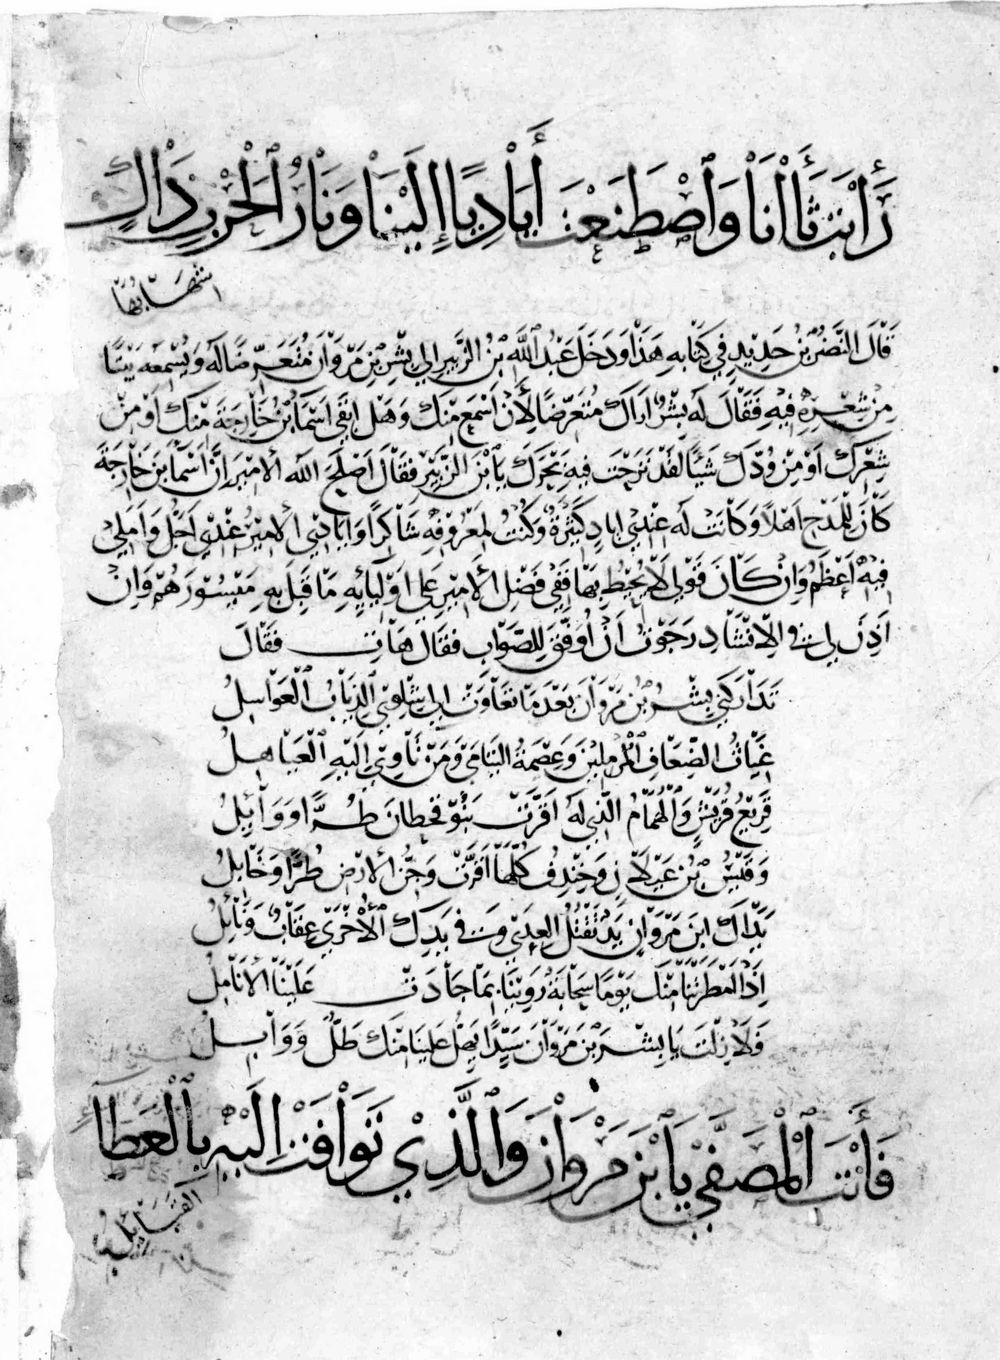 رَأَبْتَ ثَأَانَا وَٱصْطَنَعْتَ أَيَادِيًا إِلَيْنَا وَنَارُ ٱلْحَرْبِ ذَاكٍ
شِهَابُهَا
قَالَ النَّضْرُ بْنُ حَدِيدٍ فِي كِتَابِهِ هَذَا وَدَخَلَ عَبْدُ ٱللَّهِ بْنُ الزَّبِيرِ إِلَى بِشْرِ بْنِ مَرْوَانَ مُتَعَرِّضًا لَهُ وَيُسْمِعُهُ بَيْتًا
مِنْ شِعْرِهِ فِيهِ فَقَالَ لَهُ بِشْرٌ أَرَاكَ مُتَعَرِّضًا لِأَنْ أَسْمَعَ مِنْكَ وَهَلْ أَبْقَى أَسْمَا بْنُ خَارِجَةَ مِنْكَ أَوْ مِنْ
شِعْرِكَ أَوْ مِنْ وُدِّكَ شَيْئًا لَقَدْ نَزَحْتَ فِيهِ بَحْرَكَ يَا بْنَ الزَّبِيرِ فَقَالَ أَصْلَحَ اللَّهُ الأَمِيرَ إِنَّ أَسْمَا بْنَ خَارِجَةَ
كَانَ لِلْمَدْحِ أَهْلًا وَكَانَتْ لَهُ عِنْدِي أَيَادٍ كَثِيرَةٌ وَكُنْتُ لِمَعْرُوفِهِ شَاكِرًا وَأَيَادِي الأَمِيرِ عِنْدِي أَجَلُّ وَأَمَلِي
فِيهِ أَعْظَمُ وَإِنْ كَانَ قَوْلِي لَا يُحِيطُ بِهَا فَفِي فَضْلِ الأَمِيرِ عَلَى أَوْلِيَائِهِ مَا قَبِلَ بِهِ مَيْسُورَهُمْ وَإِنْ
أَذِنَ لِي فِي الْإِنْشَادِ رَجَوْتُ أَنْ أُوَفَّقَ لِلصَّوَابِ فَقَالَ هَاتِ فَقَالَ
تَدَارَكَنِي بِشْرُ بْنُ مَرْوَانَ بَعْدَمَا تَعَاوَتْ إِلَى شِلْوِي ٱلذِّيَابُ ٱلْعَوَاسِلُ
غِيَاثُ الضِّعَافِ ٱلْمُرْمِلِينَ وَعِصْمَةُ الْيَتَامَى وَمَنْ تَأْوِي إِلَيْهِ ٱلْعَبَاهِلُ
قَرِيعُ قُرَيْشٍ وَٱلْهُمَامُ الَّذِي لَهُ أَقَرَّتْ بَنُو قَحْطَانَ طُرًّا وَوَائِلُ
وَقَيْسُ بْنُ عَيْلَانٍ وَخِنْدِفُ كُلُّهَا أَقَرَّتْ وَجِنُّ الأَرْضِ طُرًّا وَخَابِلُ
يَدَاكَ ابْنَ مَرْوَانٍ يَدٌ تَقْتُلُ الْعِدَى وَفِي يَدِكَ ٱلأُخْرَى عِقَابٌ وَنَائِلُ
إِذَا أَمْطَرَتْنَا مِنْكَ يَوْمًا سَحَابَةٌ رَوِينَا بِمَا جَادَتْ عَلَيْنَا الأَنَامِلُ
فَلَا زِلْتَ يَا بِشْرَ بْنَ مَرْوَانَ سَيِّدًا يَصِلُ عَلَيْنَا مِنْكَ طَلٌّ وَوَابِلُ
فَأَنْتَ ٱلْمُصَفَّى يَا بْنَ مَرْوَانَ وَٱلَّذِي تَوَافَتْ إِلَيْهِ بِٱلْعَطَاءِ
الْقَبَائِلُ